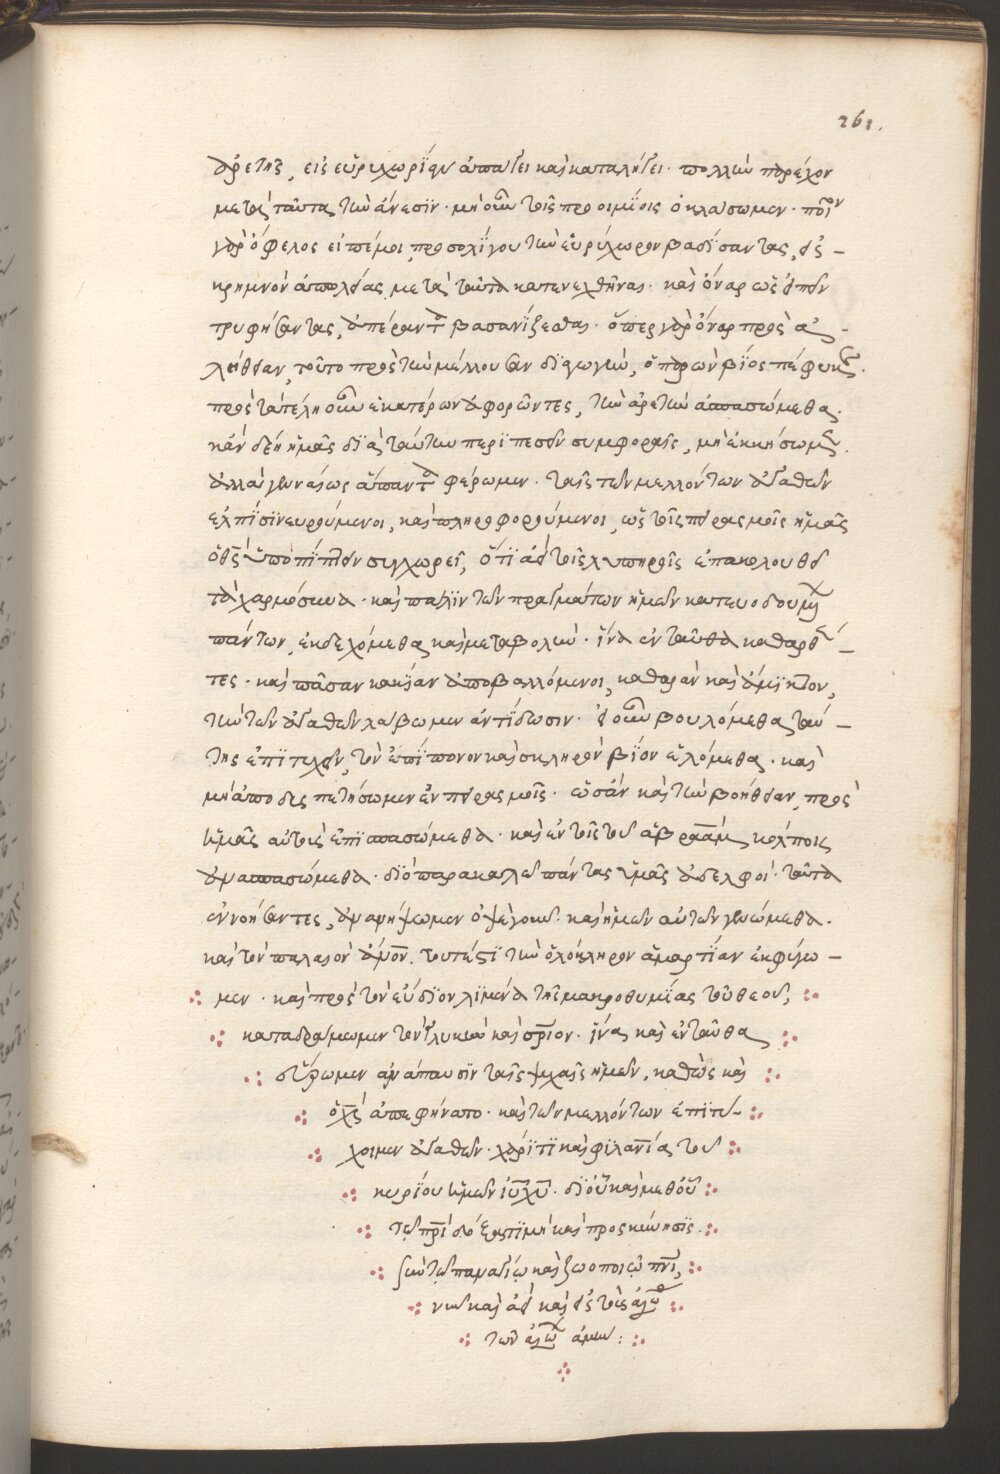 261.
ἀρετῆς, εἰς εὐρυχωρίαν ἀπάγει καὶ καταλήγει· πολλὴν παρέχον
μετὰ ταῦτα τὴν ἄνεσιν· μὴ οὖν τοῖς προοιμίοις ὀκλάσωμεν· ποῖον
γὰρ ὄφελος εἰπέ μοι, προσολίγον τὴν εὐρύχωρον βαδίσαντας, εἰς
κρημνὸν ἀπωλείας μετὰ ταῦτα κατενεχθῆναι· καὶ ὄναρ ὡς εἰπεῖν
τρυφήσαντας, ἀπέραντα βασανίζεσθαι· ὅπερ γὰρ ὄναρ πρὸς ἀ-
λήθειαν, τοῦτο πρὸς τὴν μέλλουσαν διαγωγὴν, ὁ παρὼν βίος πέφυκεν.
πρὸς τὰ τέλη οὖν ἑκατέρων ἀφορῶντες, τὴν ἀρετὴν ἀσπασώμεθα.
κἂν δέῃ ἡμᾶς διὰ ταύτην περιπεσεῖν συμφοραῖς, μὴ ἐκκήσωμεν.
ἀλλὰ γενναίως ἅπαντα φέρωμεν· ταῖς τῶν μελλόντων ἀγαθῶν
ἐλπίσι νευρούμενοι, καὶ πληροφορούμενοι, ὡς τοῖς πειρασμοῖς ἡμᾶς
ὁ θεὸς ὑποπίπτειν συγχωρεῖ, ὅτι ἀεὶ τοῖς λυπηροῖς ἐπακολουθεῖ
τὰ χαρμόσυνα· καὶ πάλιν τῶν πραγμάτων ἡμῶν κατευοδουμένων
πάντων, ἐκδεχόμεθα καὶ μεταβολὴν· ἵνα ἐνταῦθα καθαρθέν-
τες· καὶ πᾶσαν κακίαν ἀποβαλλόμενοι, καθαρὰν καὶ ἀμίκτον,
τὴν τῶν ἀγαθῶν λάβωμεν ἀντίδωσιν· εἰ οὖν βουλόμεθα ταύ-
της ἐπιτυχεῖν, τὸν ἐπίπονον καὶ σκληρὸν βίον ἑλόμεθα· καὶ
μὴ ἀποδυσπετήσωμεν ἐν πειρασμοῖς· ὡς ἂν καὶ τὴν βοήθειαν, πρὸς
ἡμᾶς αὐτοὺς ἐπισπασώμεθα· καὶ ἐν τοῖς τοῦ ἀβραὰμ κόλποις
ἀναπαυσώμεθα· διὸ παρακαλῶ πάντας ὑμᾶς ἀδελφοί· ταῦτα
ἐννοήσαντες, ἀνανήψωμεν ὀψέγουν· καὶ ἡμῶν αὐτῶν γενώμεθα.
καὶ τὸν παλαιὸν ἄνον. τουτέστι τὴν ὁλόκληρον ἁμαρτίαν ἐκφύγω-
μεν· καὶ πρὸς τὸν εὔδιον λιμένα τῆς μακροθυμίας τοῦ θεοῦ,
καταδράμωμεν τὸν γλυκὺν καὶ σωτήριον· ἵνα καὶ ἐνταῦθα
εὕρωμεν ἀνάπαυσιν ταῖς ψυχαῖς ἡμῶν, καθὼς καὶ
ὁ χς ἀπεφήνατο· καὶ τῶν μελλόντων ἐπιτύ-
χοιμεν ἀγαθῶν· χάριτι καὶ φιλανίᾳ τοῦ
κυρίου ἡμῶν ιυ χυ· δι' οὗ καὶ μεθ' οὗ
τῷ πρὶ δόξα τιμὴ καὶ προσκύνησις.
σὺν τῷ παναγίῳ καὶ ζωοποιῷ πνι,
νῦν καὶ ἀεὶ καὶ εἰς τοὺς αἰῶνας
τῶν αἰώνων ἀμήν: